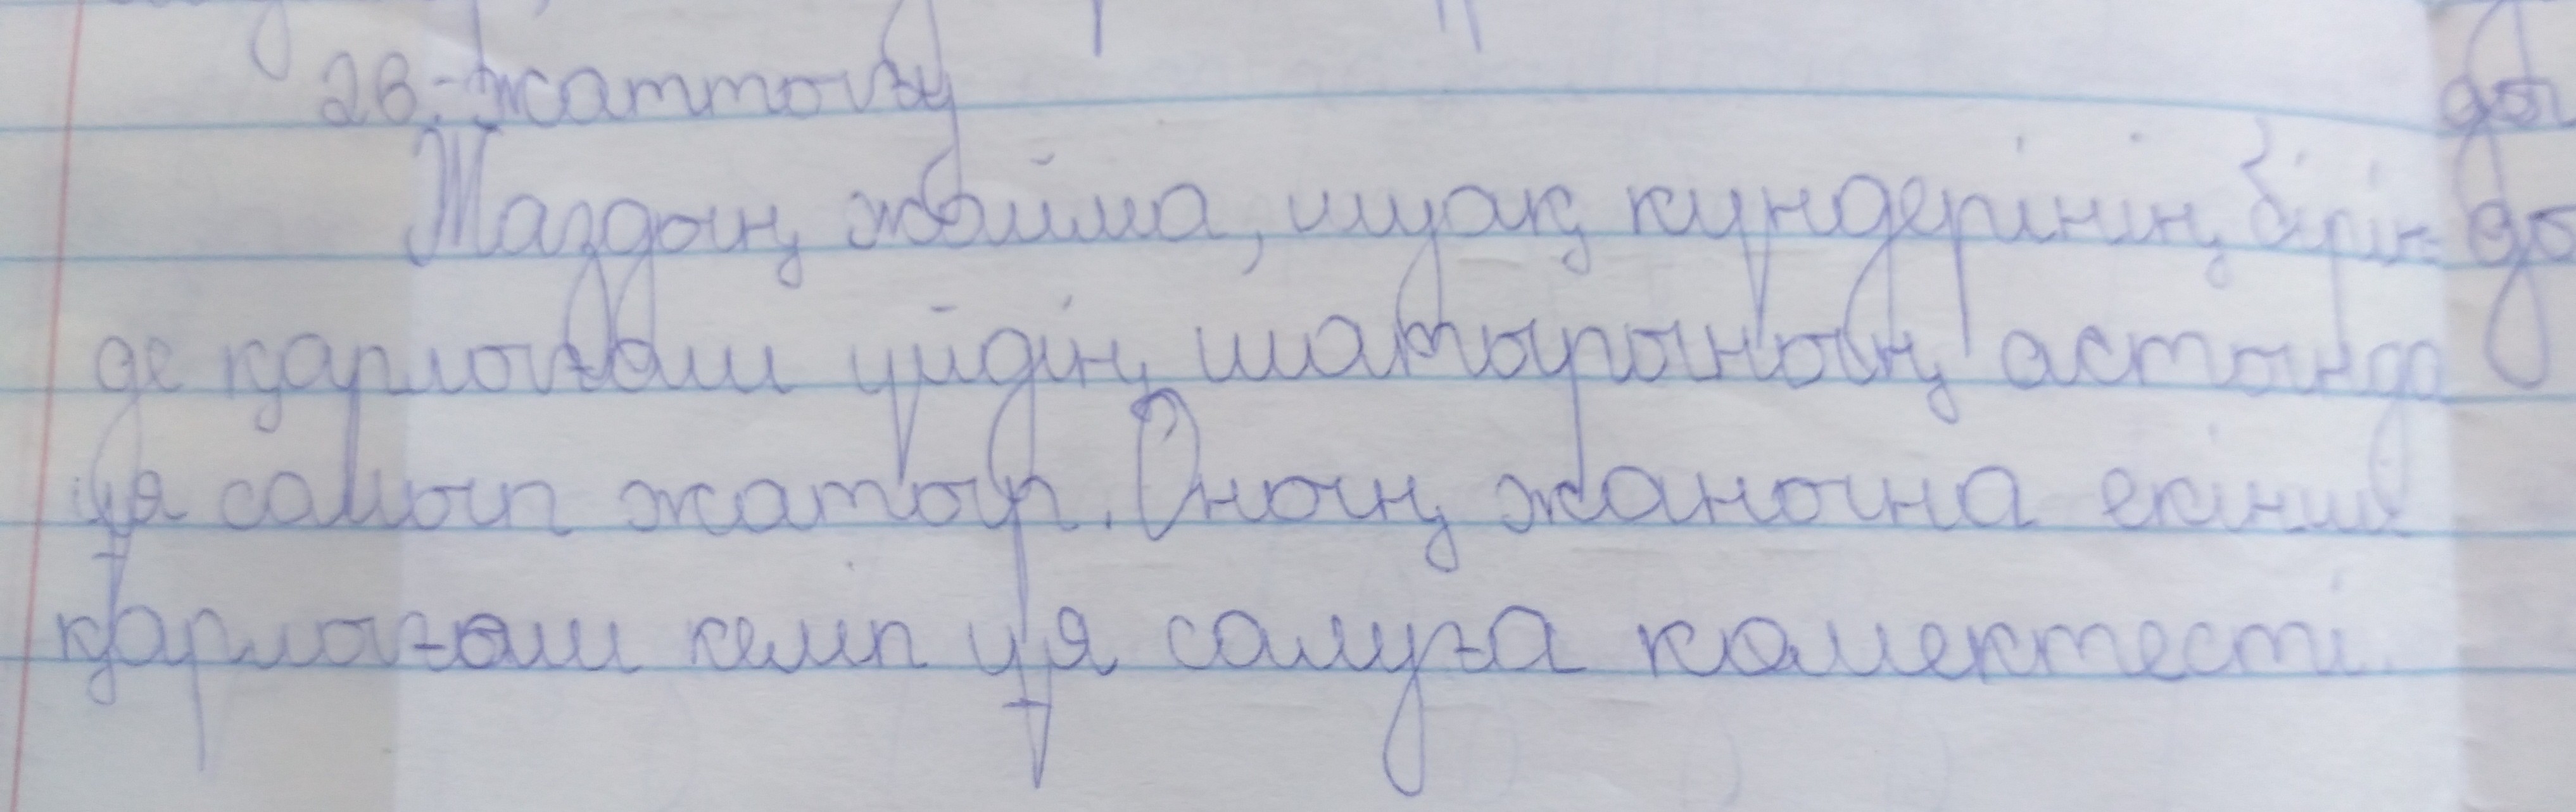 26-жаттығу
Жаздың жайма, шуақ күндерінің бірін-
де қарлығаш үйдің шатырының астында
ұя салып жатыр. Оның жанына екінші
қарлығаш келіп ұя салуға көмектесті.